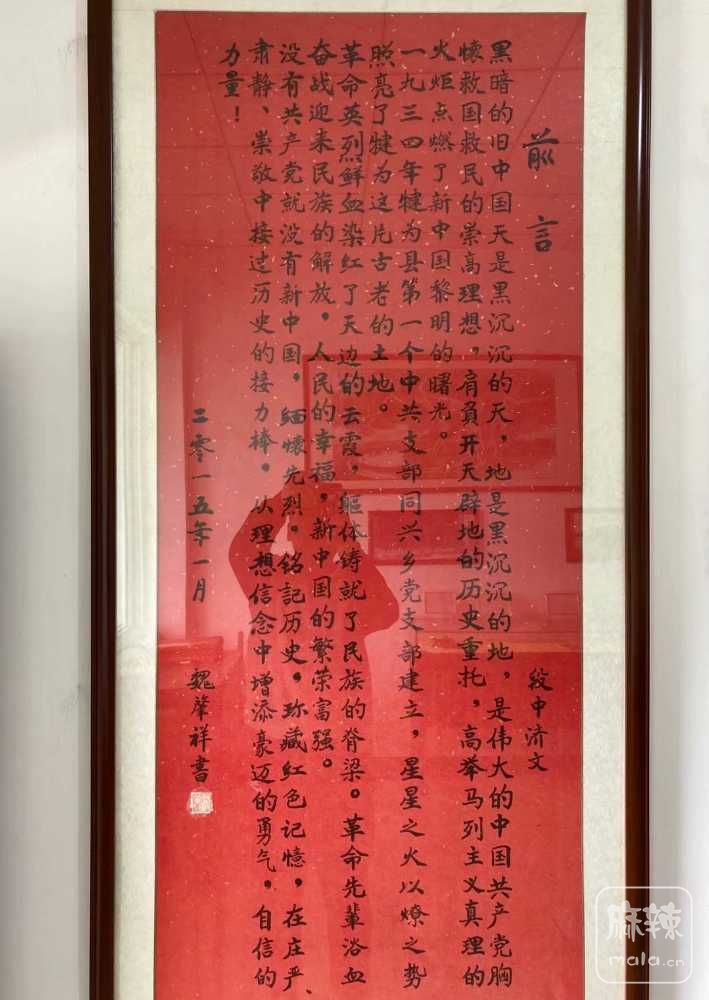 前言
段中济文
黑暗的旧中国天是黑沉沉的天，地是黑沉沉的地，是伟大的中国共产党胸
怀救国救民的崇高理想，肩負开天辟地的历史重托，高举马列主义真理的
火炬点燃了新中国黎明的曙光。
一九三四年犍为县第一个中共支部同兴乡党支部建立，星星之火以燎之势
照亮了犍为这片古老的土地。
革命英烈鲜血染红了天边的云霞，躯体铸就了民族的脊梁。革命先辈浴血
奋战迎来民族的解放，人民的幸福，新中国的繁荣富强。
没有共产党就没有新中国，缅懷先烈，铭記历史，珍藏红色记憶，在庄严、
肃静、崇敬中接过历史的接力棒，从理想信念中增添豪迈的勇气，自信的
力量！
二零一五年一月
魏肇祥書
麻辣
mala.cn